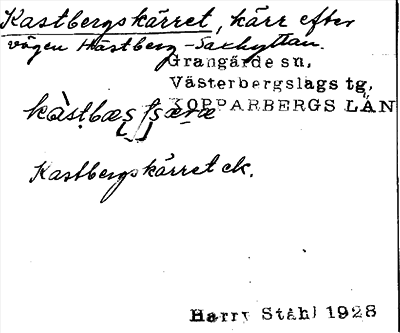 Kastbergskärret, kärr efter
vägen Hästberg-Saxhyttan.
Grangärde sn,
Västerbergslags tg,
KOPPARBERGS LÄN
Kastbergskärret ek.
Harry Ståhl 1928